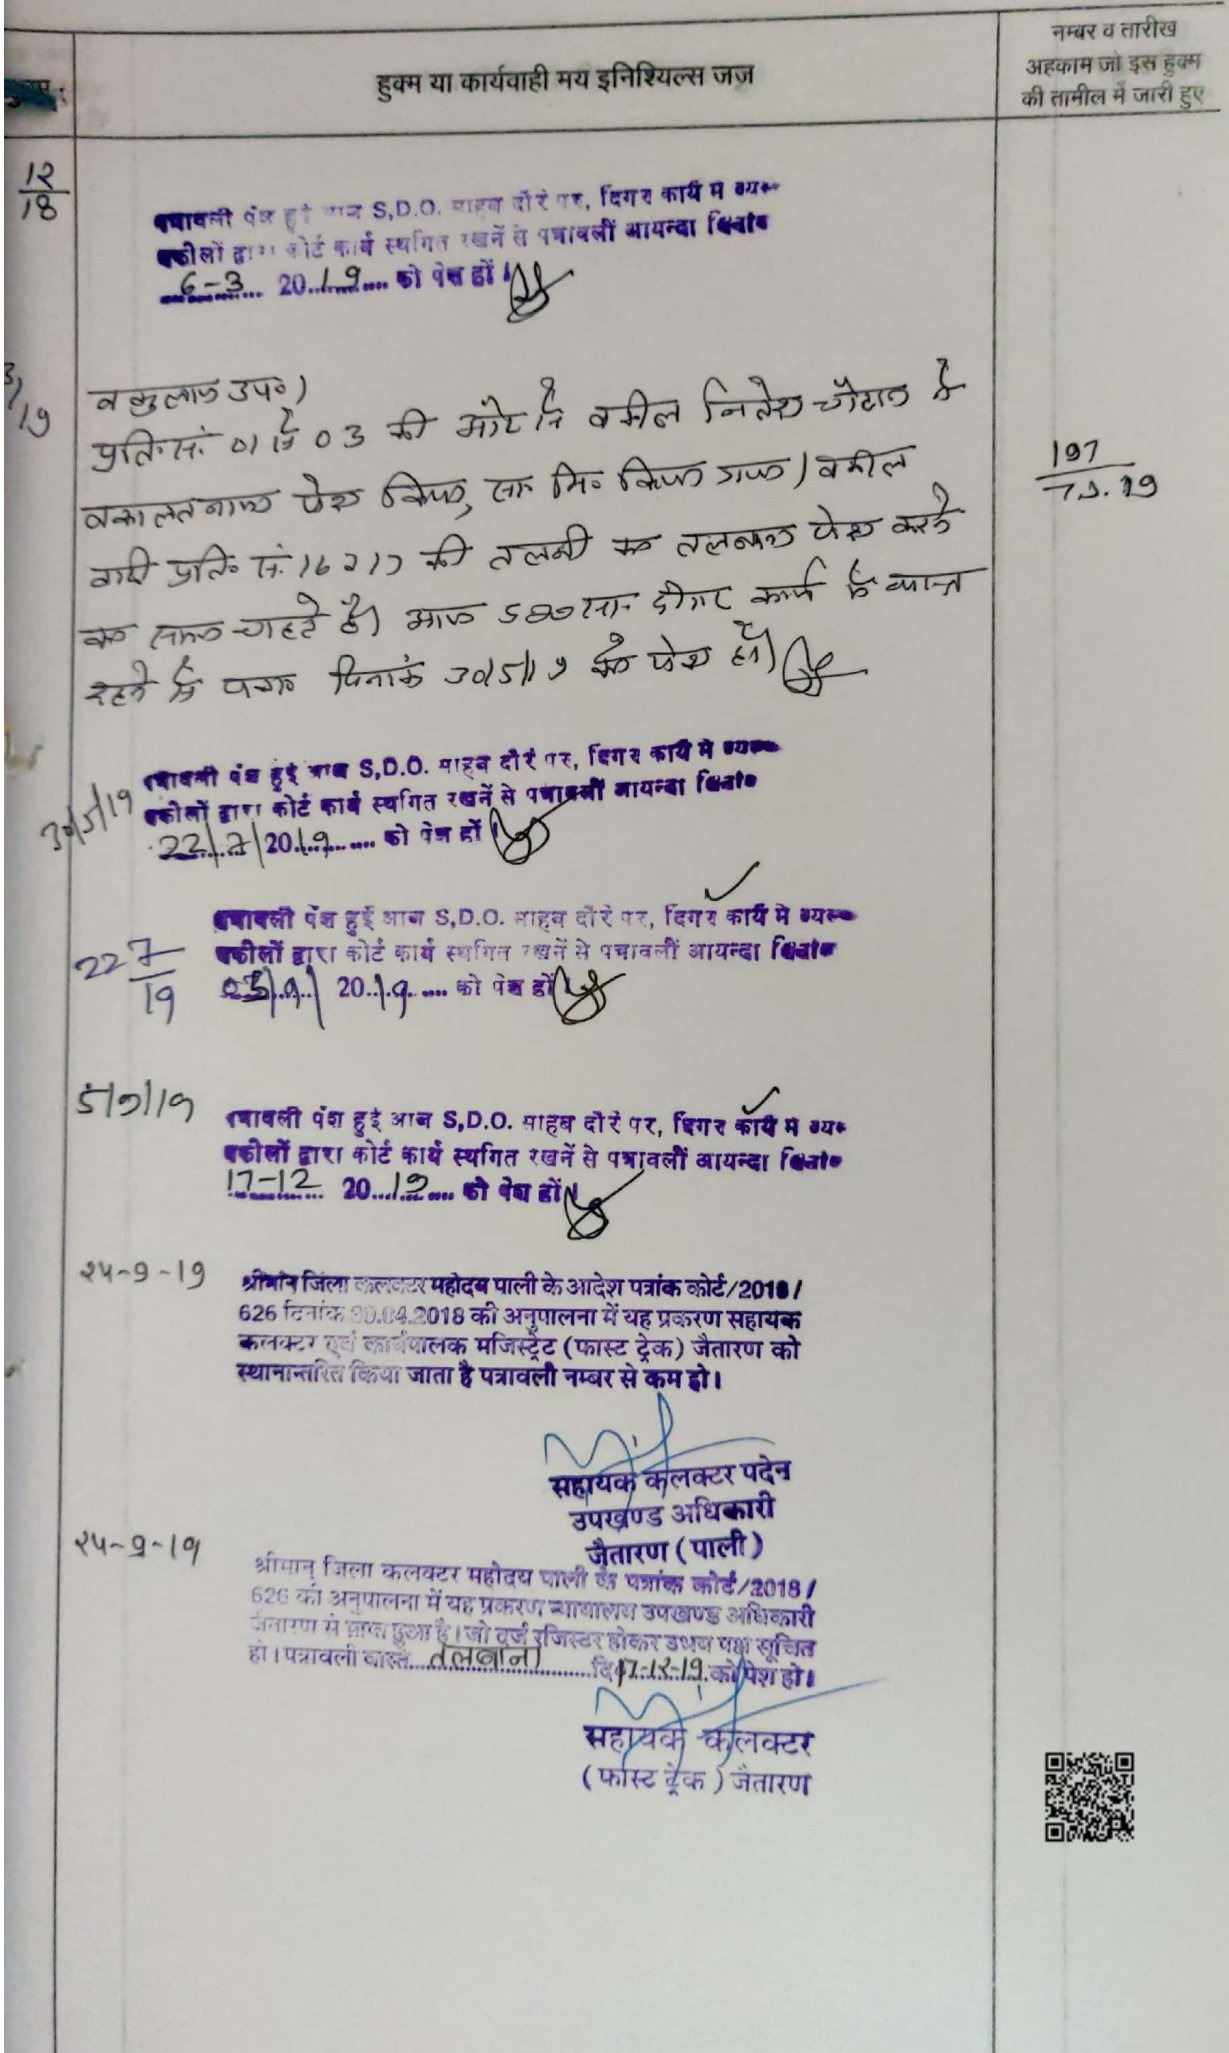 नम्बर व तारीख
अहकाम जो इस हुक्म
की तामील में जारी हुए
हुक्म या कार्यवाही मय इनिश्यिल्स जज
12
18
पत्रावली पेश हुई आज S,D.O. साहब दौरे पर, दिगर कार्य मे व्यस्त
वकीलों द्वारा कोर्ट कार्य स्थगित रखनें से पत्रावलीं आयन्दा दिनांक
6-3 2019 को पेश हों।
3/19
वकुलाय उप०)
प्रति.सं. 01 से 03 की ओर से वकील ने
वकालतनामा पेश किया, सा. मि. किया गया) वकील
वादी प्रति. सं. 16 व 17 की तलबी का तलबाना पेश करने
का चाहते है) आज SDO सा. दीगर कार्य में व्यस्त
रहने से पत्रा दिनांक 30/5/19 को पेश हो)
197
30/5/19
पत्रावली पेश हुई आज S,D.O. साहब दौरे पर, दिगर कार्य मे व्यस्त
वकीलों द्वारा कोर्ट कार्य स्थगित रखनें से पत्रावलीं आयन्दा दिनांक
22/7/2019 को पेश हों।
22 7
19
पत्रावली पेश हुई आज S,D.O. साहब दौरे पर, दिगर कार्य मे व्यस्त
वकीलों द्वारा कोर्ट कार्य स्थगित रखनें से पत्रावलीं आयन्दा दिनांक
2019 को पेश हों
5/9/19
पत्रावली पेश हुई आज S,D.O. साहब दौरे पर, दिगर कार्य मे व्यस्त
वकीलों द्वारा कोर्ट कार्य स्थगित रखनें से पत्रावलीं आयन्दा दिनांक
17-12 2019 को पेश हों।
२५-9-19
श्रीमान जिला कलक्टर महोदय पाली के आदेश पत्रांक कोर्ट/2018/
626 दिनांक 30.04.2018 की अनुपालना में यह प्रकरण सहायक
कलक्टर एवं कार्यपालक मजिस्ट्रेट (फास्ट ट्रेक) जैतारण को
स्थानान्तरित किया जाता है पत्रावली नम्बर से कम हो।
सहायक कलक्टर पदेन
उपखण्ड अधिकारी
जैतारण (पाली)
२५-9-19
श्रीमान् जिला कलक्टर महोदय पाली के पत्रांक कोर्ट/2018/
626 की अनुपालना में यह प्रकरण न्यायालय उपखण्ड अधिकारी
जैतारण से प्राप्त हुआ है। जो दर्ज रजिस्टर होकर उभय पक्ष सूचित
हो। पत्रावली वास्ते तलबाना दि. 17-12-19 को पेश हो।
सहायक कलक्टर
(फास्ट ट्रेक) जैतारण